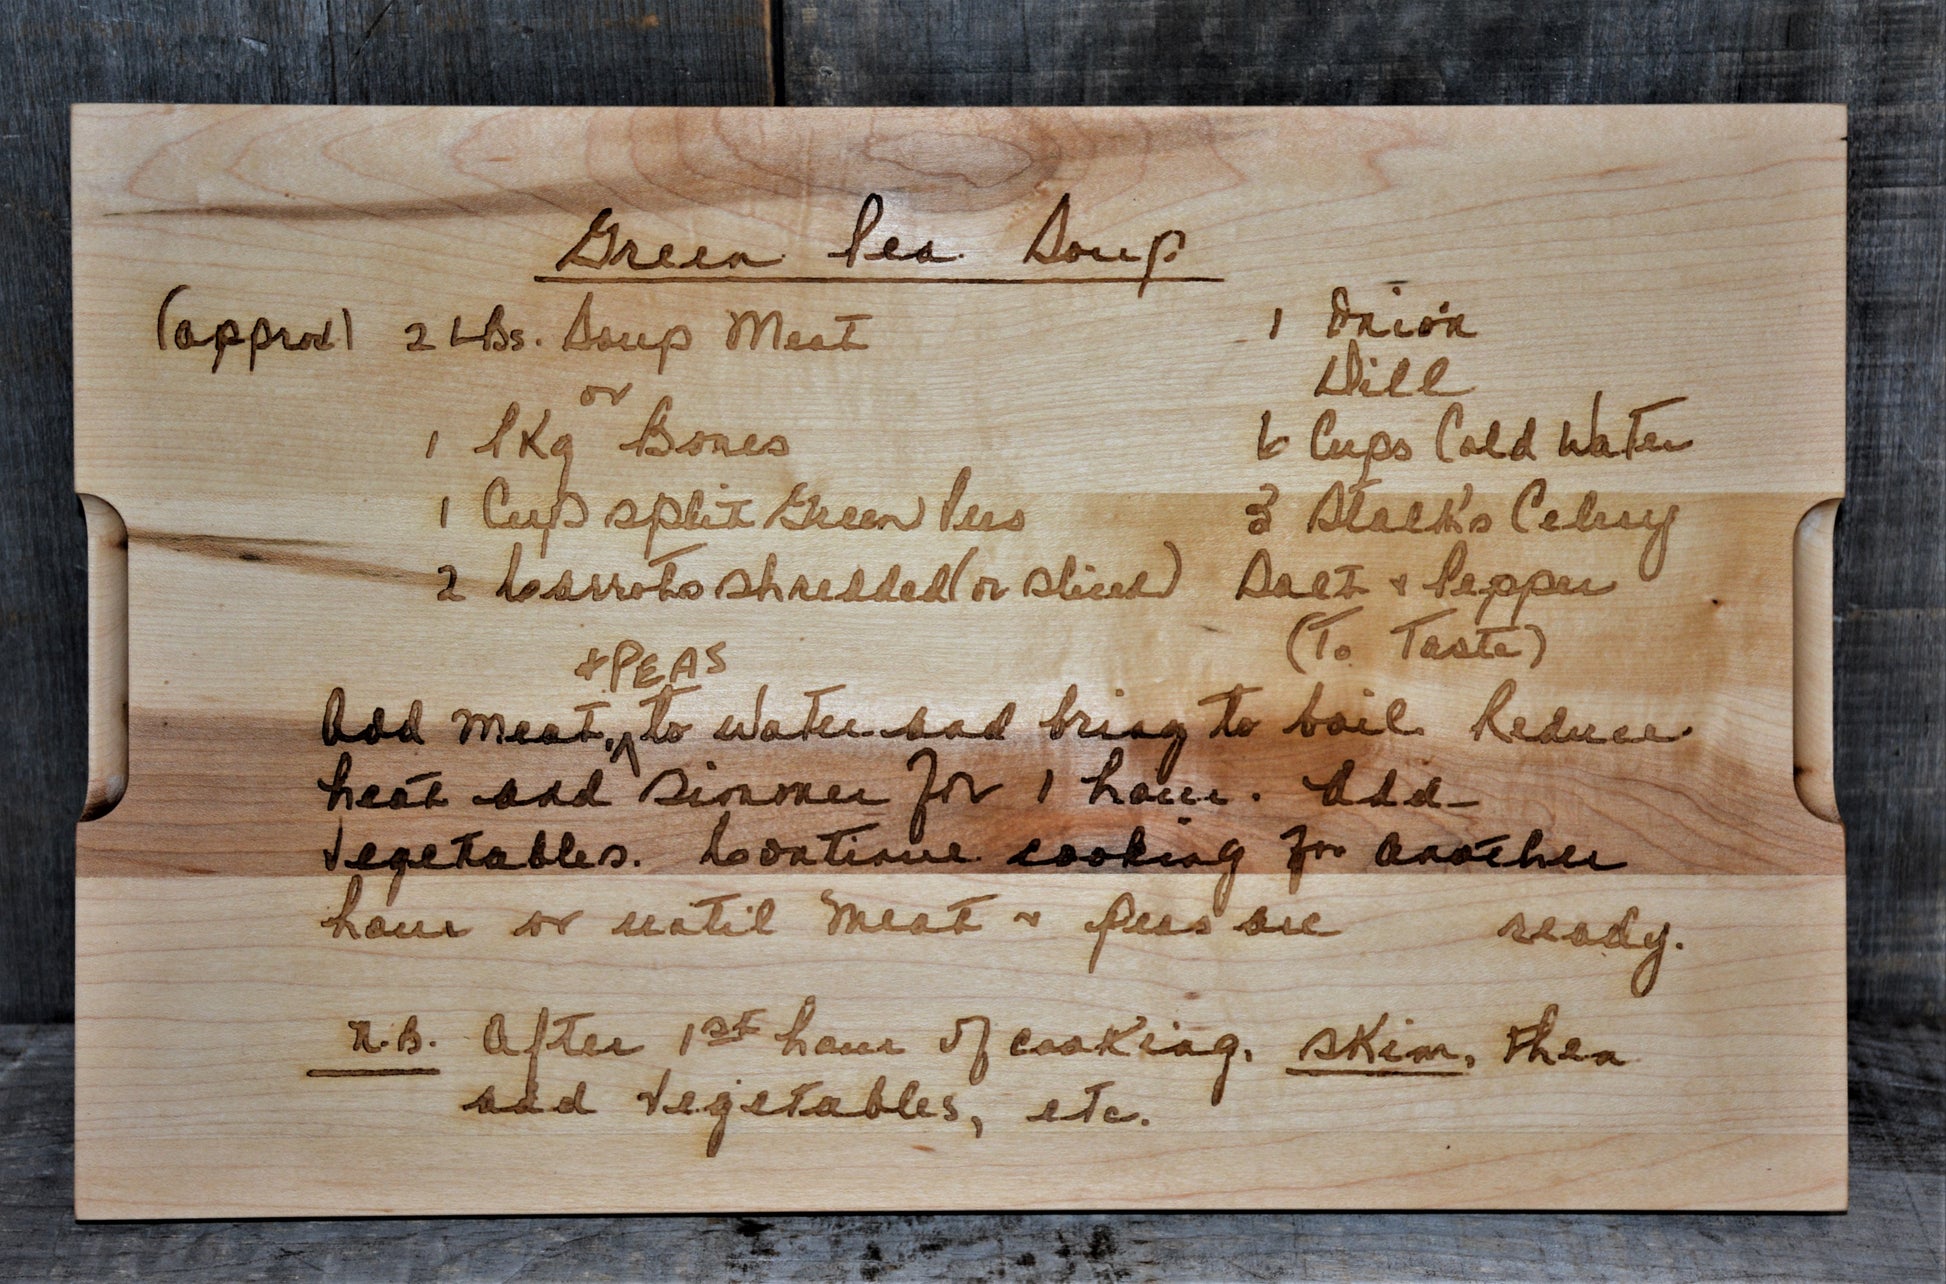 Green Pea Soup
(approx) 2 LBs. Soup Meat
or
1 Pkg Bones
1 Cup split Green Peas
2 Carrots shredded (or sliced)
1 Onion
Dill
6 Cups Cold Water
3 Stalks Celery
Salt & Pepper
(To Taste)
+ PEAS
Add Meat, ^ to water and bring to boil. Reduce
heat and simmer for 1 hour. Add
vegetables. Continue cooking for another
hour or until meat & peas are ready.
N.B. After 1st hour of cooking, skim, then
add vegetables, etc.